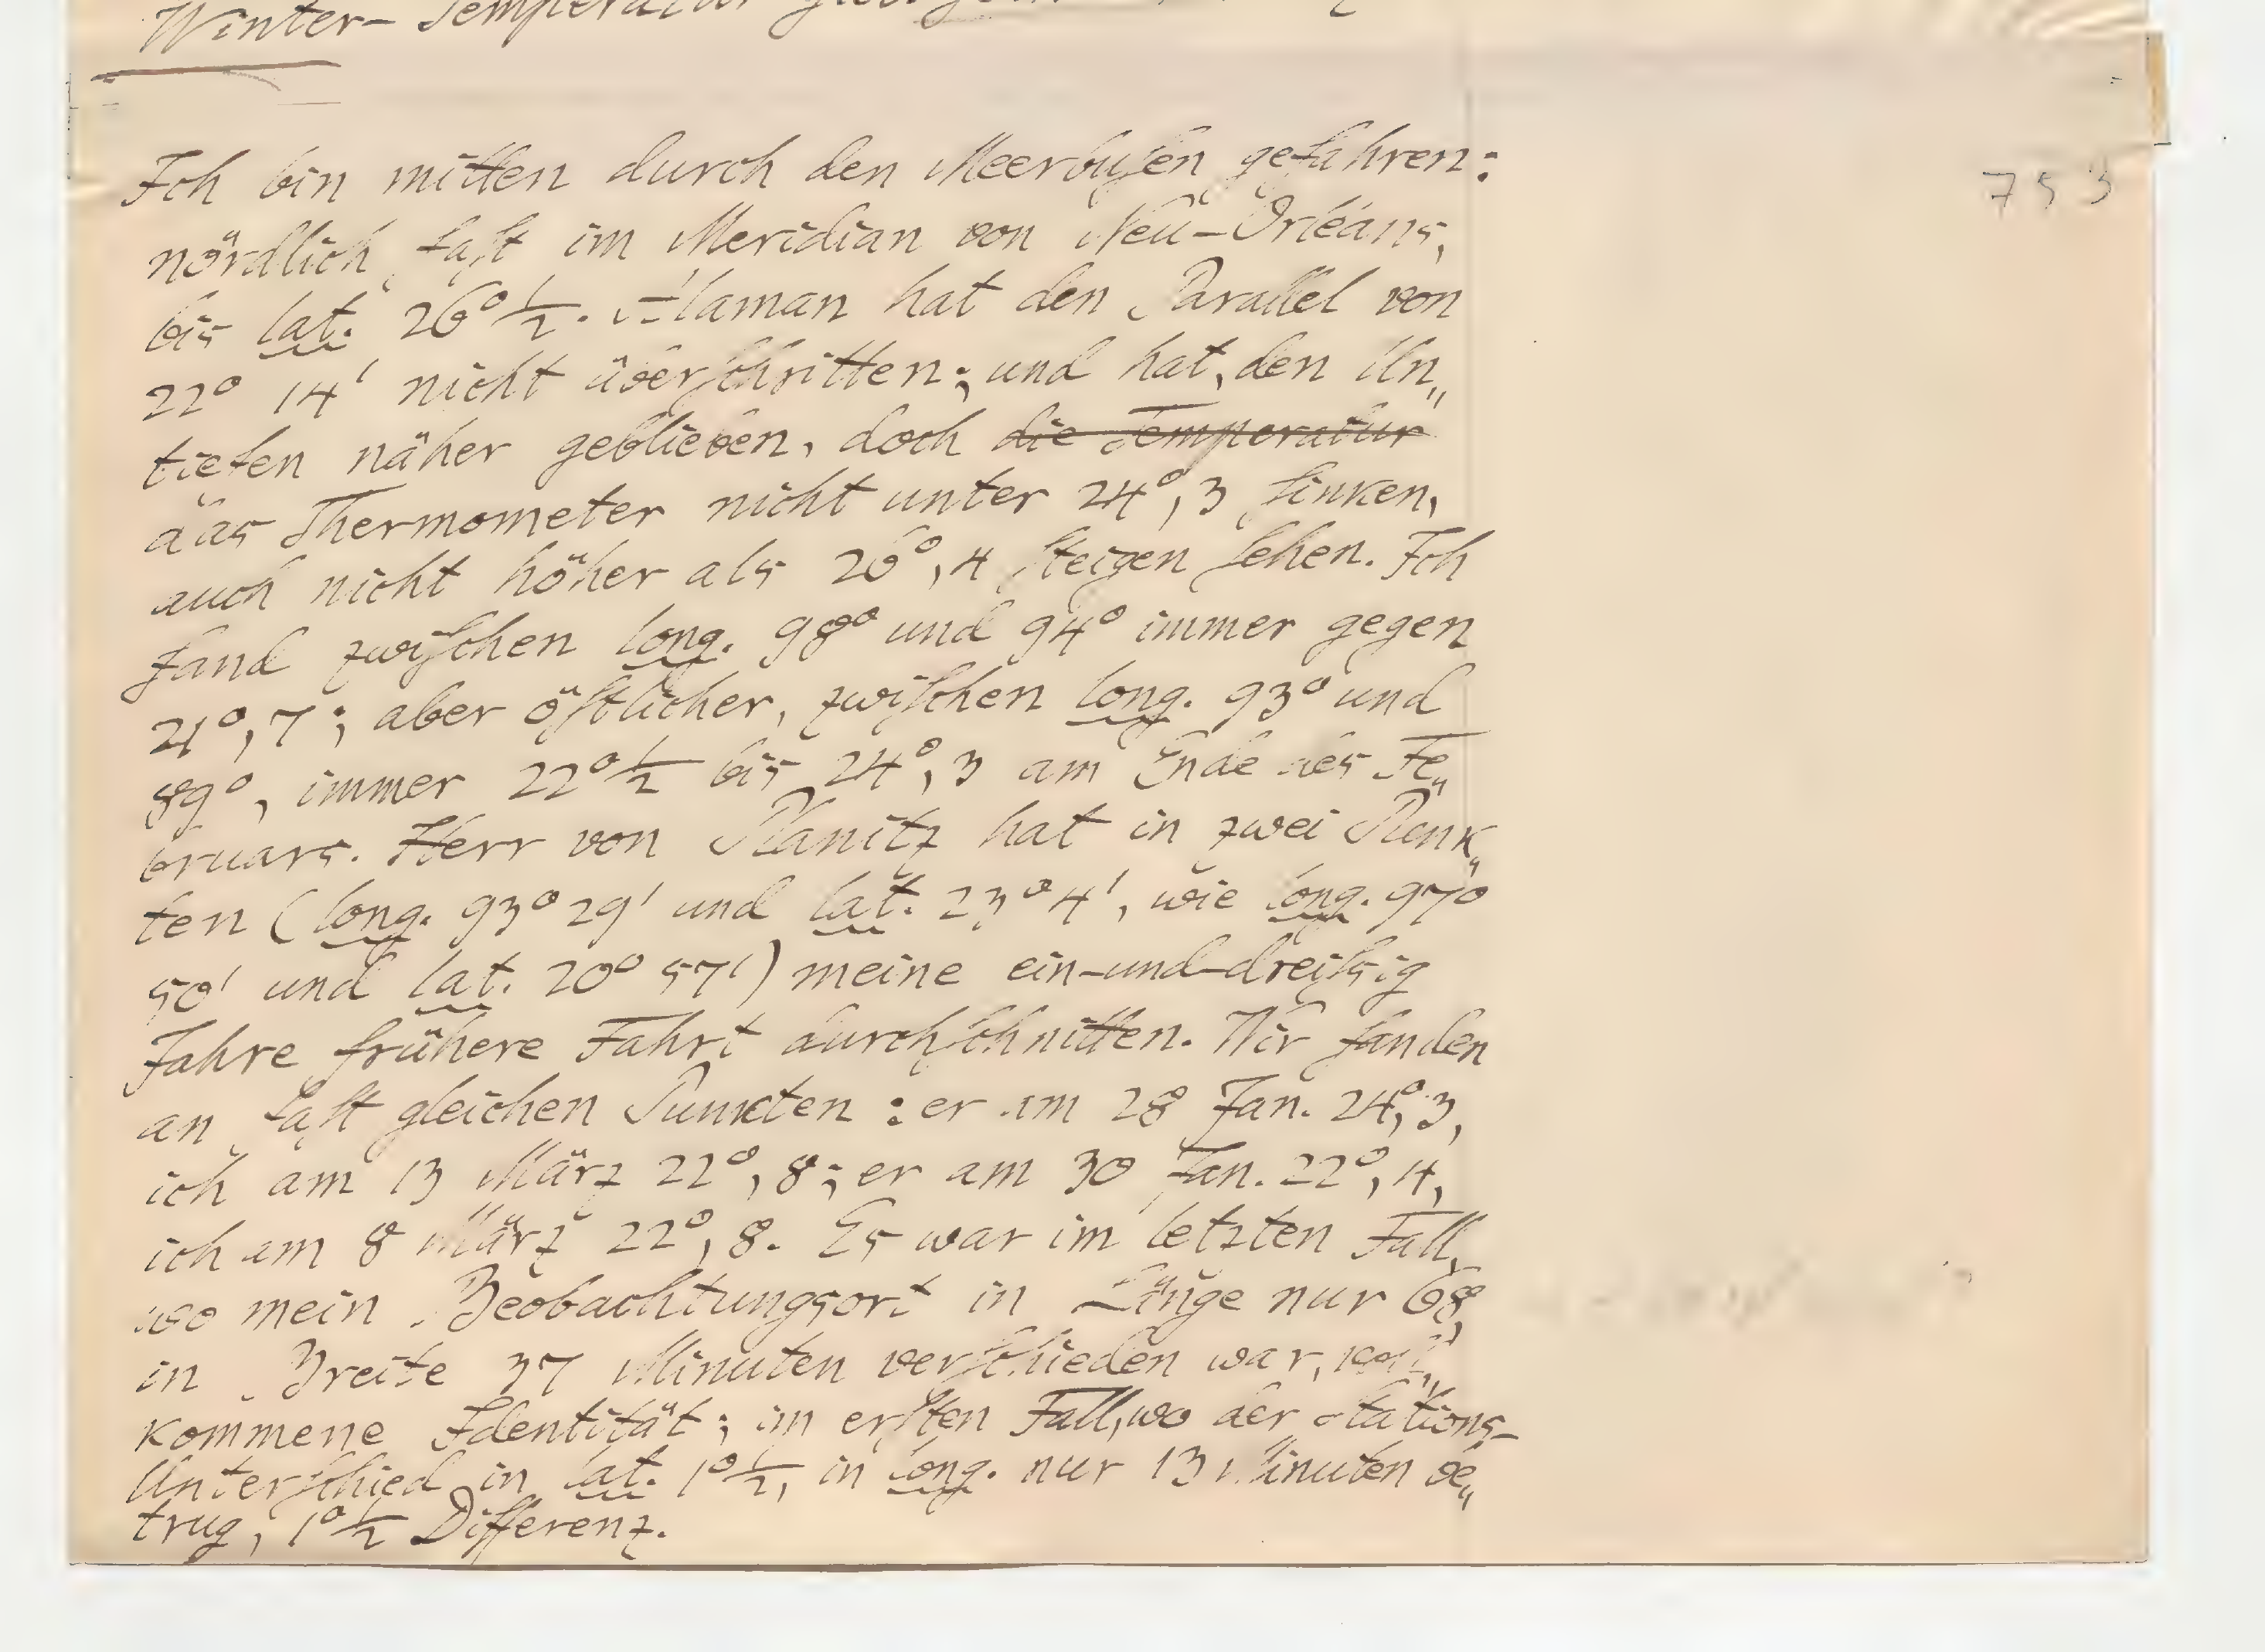 Winter-Temperatur
753
Ich bin mitten durch den Meerbuſen gefahren:
nördlich, faſt im Meridian von Neu-Orléans,
bis lat. 26° ½. Alaman hat den Parallel von
22° 14' nicht überſchritten; und hat, den Un„
tiefen näher geblieben, doch die Temperatur
das Thermometer nicht unter 24°,3 ſinken,
auch nicht höher als 26°,4 ſteigen ſehen. Ich
fand zwiſchen long. 98° und 94° immer gegen
21°,7; aber öſtlicher, zwiſchen long. 93° und
89°, immer 22° ½ bis 24°,3 am Ende des Fe„
bruars. Herr von Kanitz hat in zwei Punk„
ten (long. 93° 29' und lat. 23° 4', wie long. 97°
50' und lat. 20° 57') meine ein-und-dreiſsig
Jahre frühere Fahrt durchſchnitten. Wir fanden
an faſt gleichen Punkten: er am 28 Jan. 24°,3,
ich am 13 März 22°,8; er am 30 Jan. 22°,4,
ich am 8 März 22°,8. Es war im letzten Fall,
wo mein Beobachtungsort in Länge nur 68,
in Breite 37 Minuten verſchieden war, voll„
kommene Identität; im erſten Fall, wo der Stations-
Unterſchied in lat. 1° ½, in long. nur 13 Minuten be„
trug, 1° ½ Differenz.